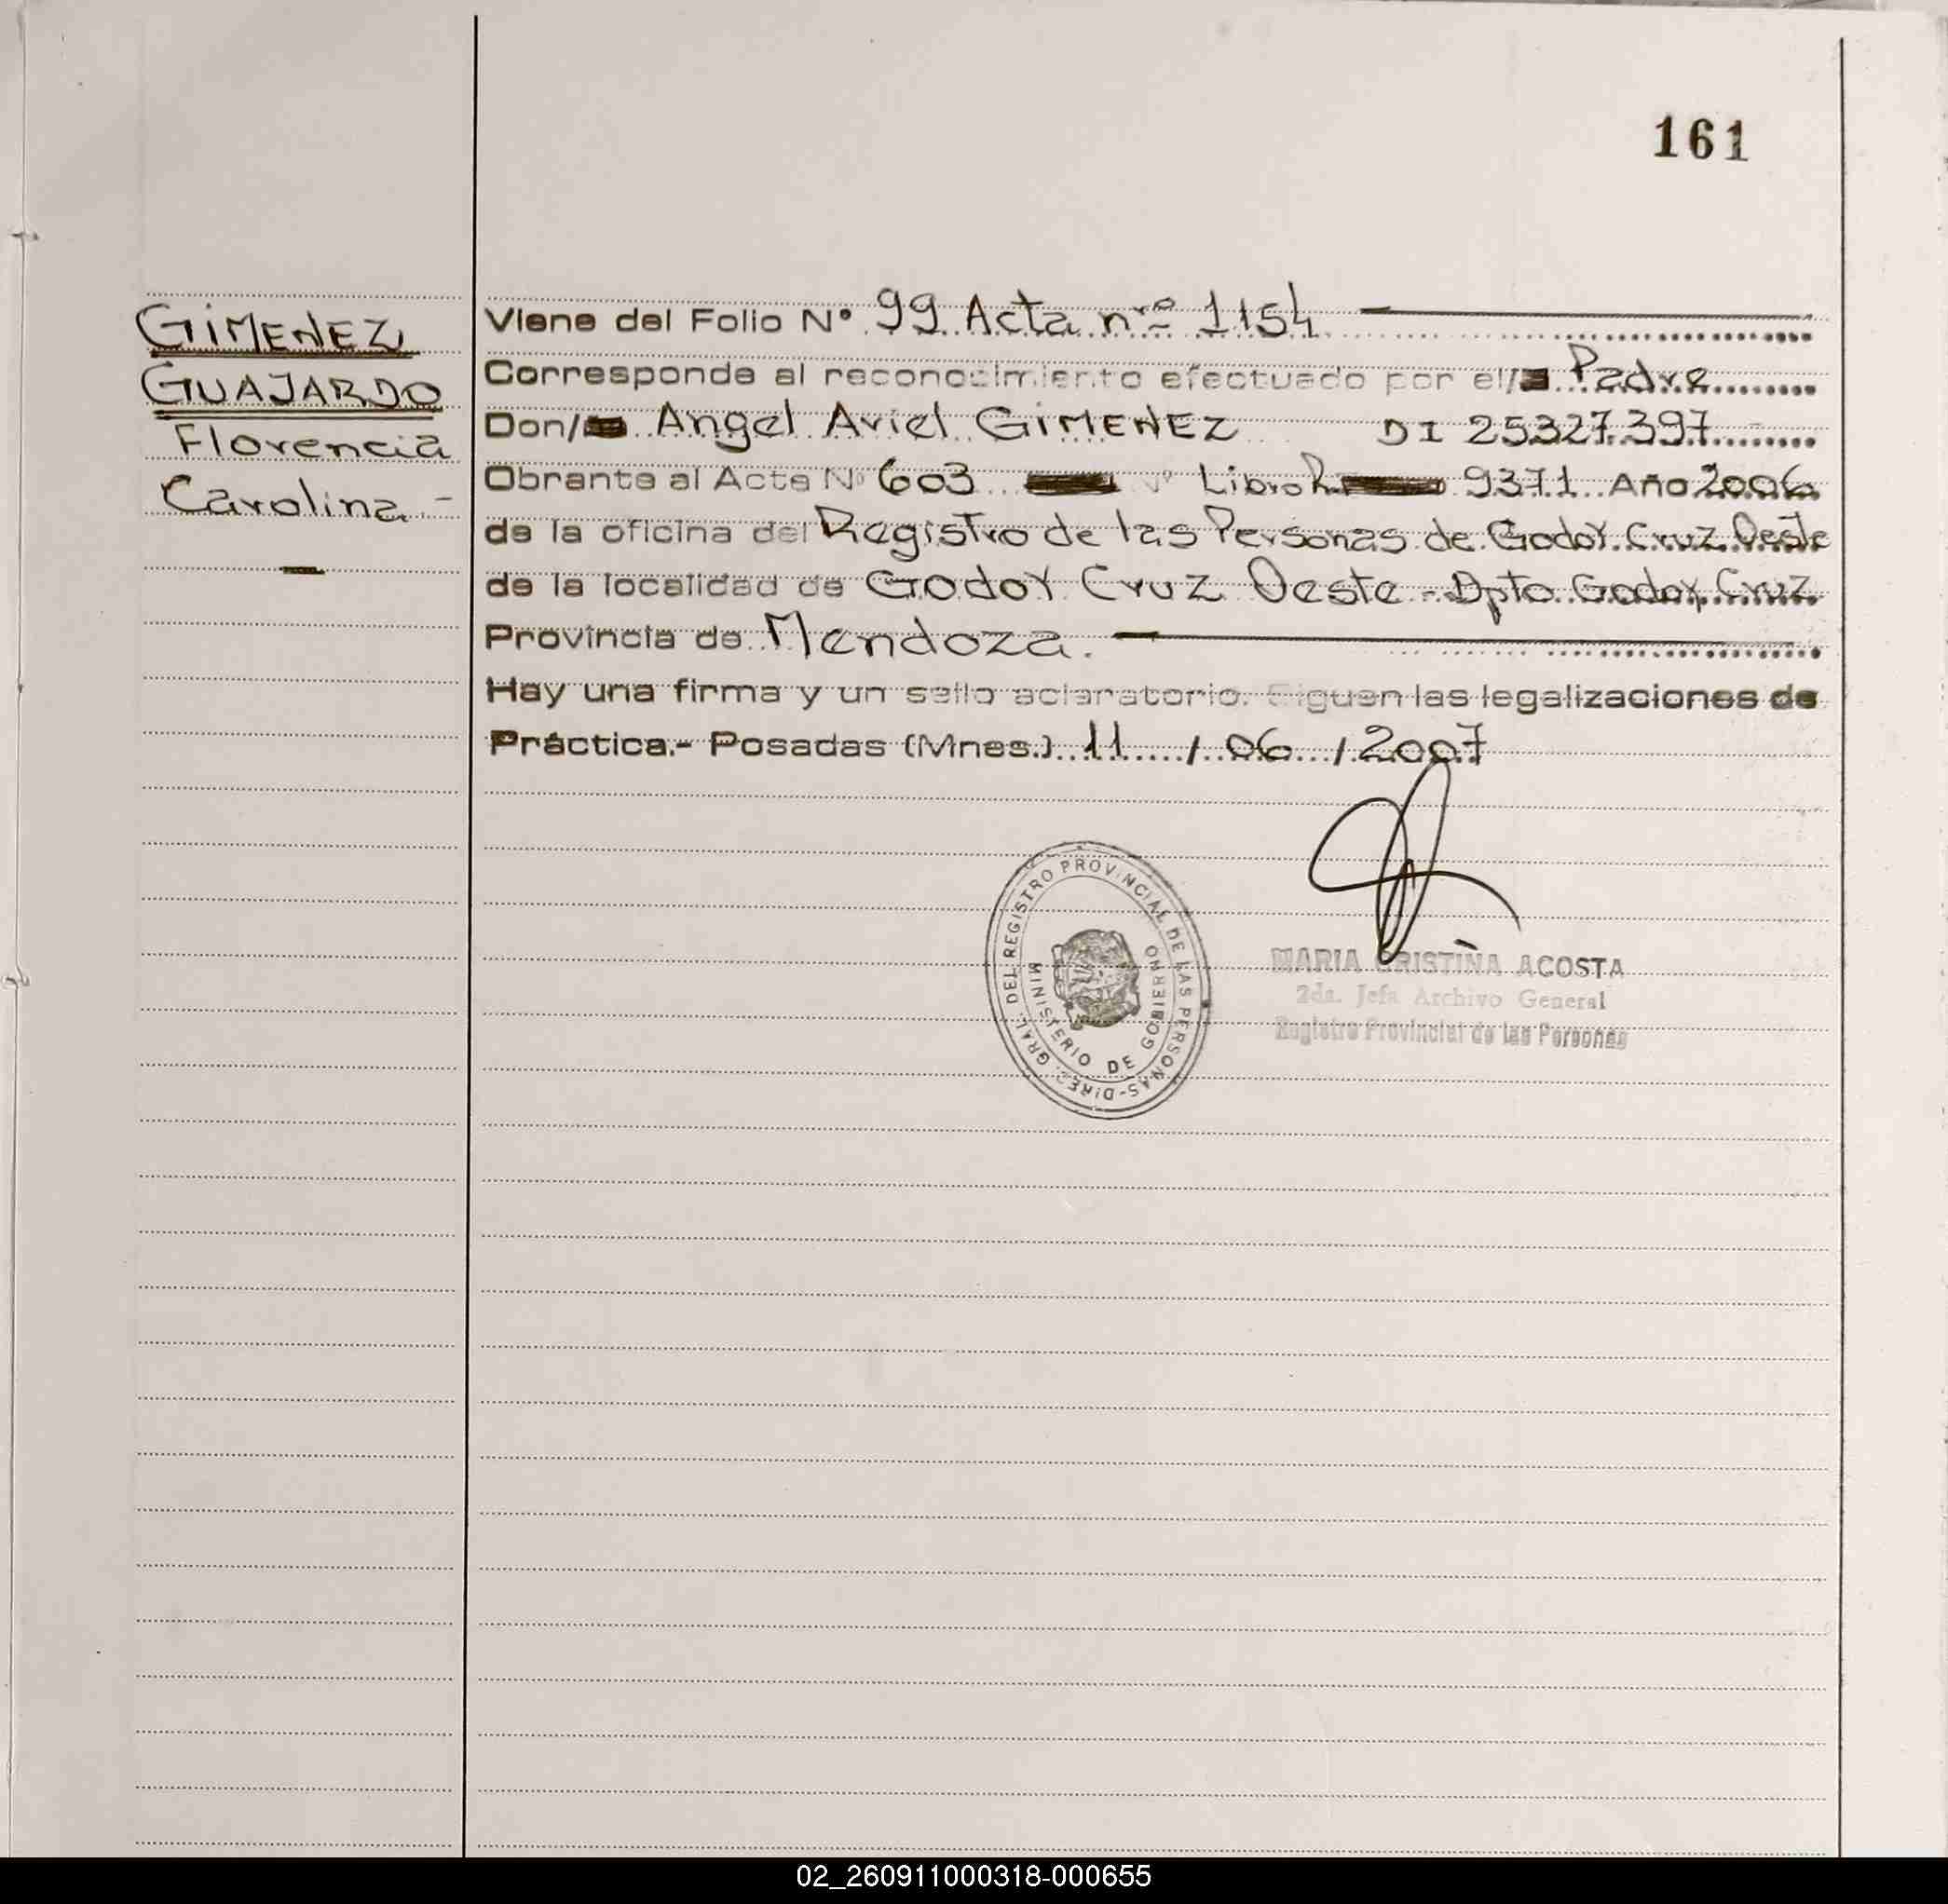 161
GIMENEZ
GUAJARDO
Florencia
Carolina.-
Viene del Folio Nº 99 Acta nro 1154
Corresponde al reconocimiento efectuado por el/ Padre
Don/ Angel Ariel GIMENEZ DI 25327.397
Obrante al Acta Nº 603 Libro R. 9371 Año 2006
de la oficina del Registro de las Personas de Godoy Cruz Oeste
de la localidad de Godoy Cruz Oeste - Dpto Godoy Cruz
Provincia de Mendoza.
Hay una firma y un sello aclaratorio. Siguen las legalizaciones de
Práctica.- Posadas (Mnes.) 11 / 06 / 2007
DIREC. GRAL. DEL REGISTRO PROVINCIAL DE LAS PERSONAS-
MINISTERIO DE GOBIERNO
MARIA CRISTINA ACOSTA
2da. Jefa Archivo General
Registro Provincial de las Personas
02_260911000318-000655